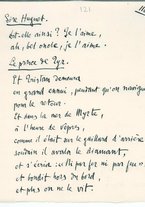 121
Sire Huguet.
Est-elle ainsi ? Je l'aime,
ah, bel oncle, je l'aime.
Le prince de Pise.
Et Tristan demeura
en grand ennui, pendant qu'on navigua
pour le retour.
Et dans la mer de Myrte,
à l'heure de vêpres,
comme il était sur le gaillard d'arrière
soudain il avala le diamant,
et s'écria : « Ni par fer ni par feu »
et bondit hors de bord,
et plus on ne le vit